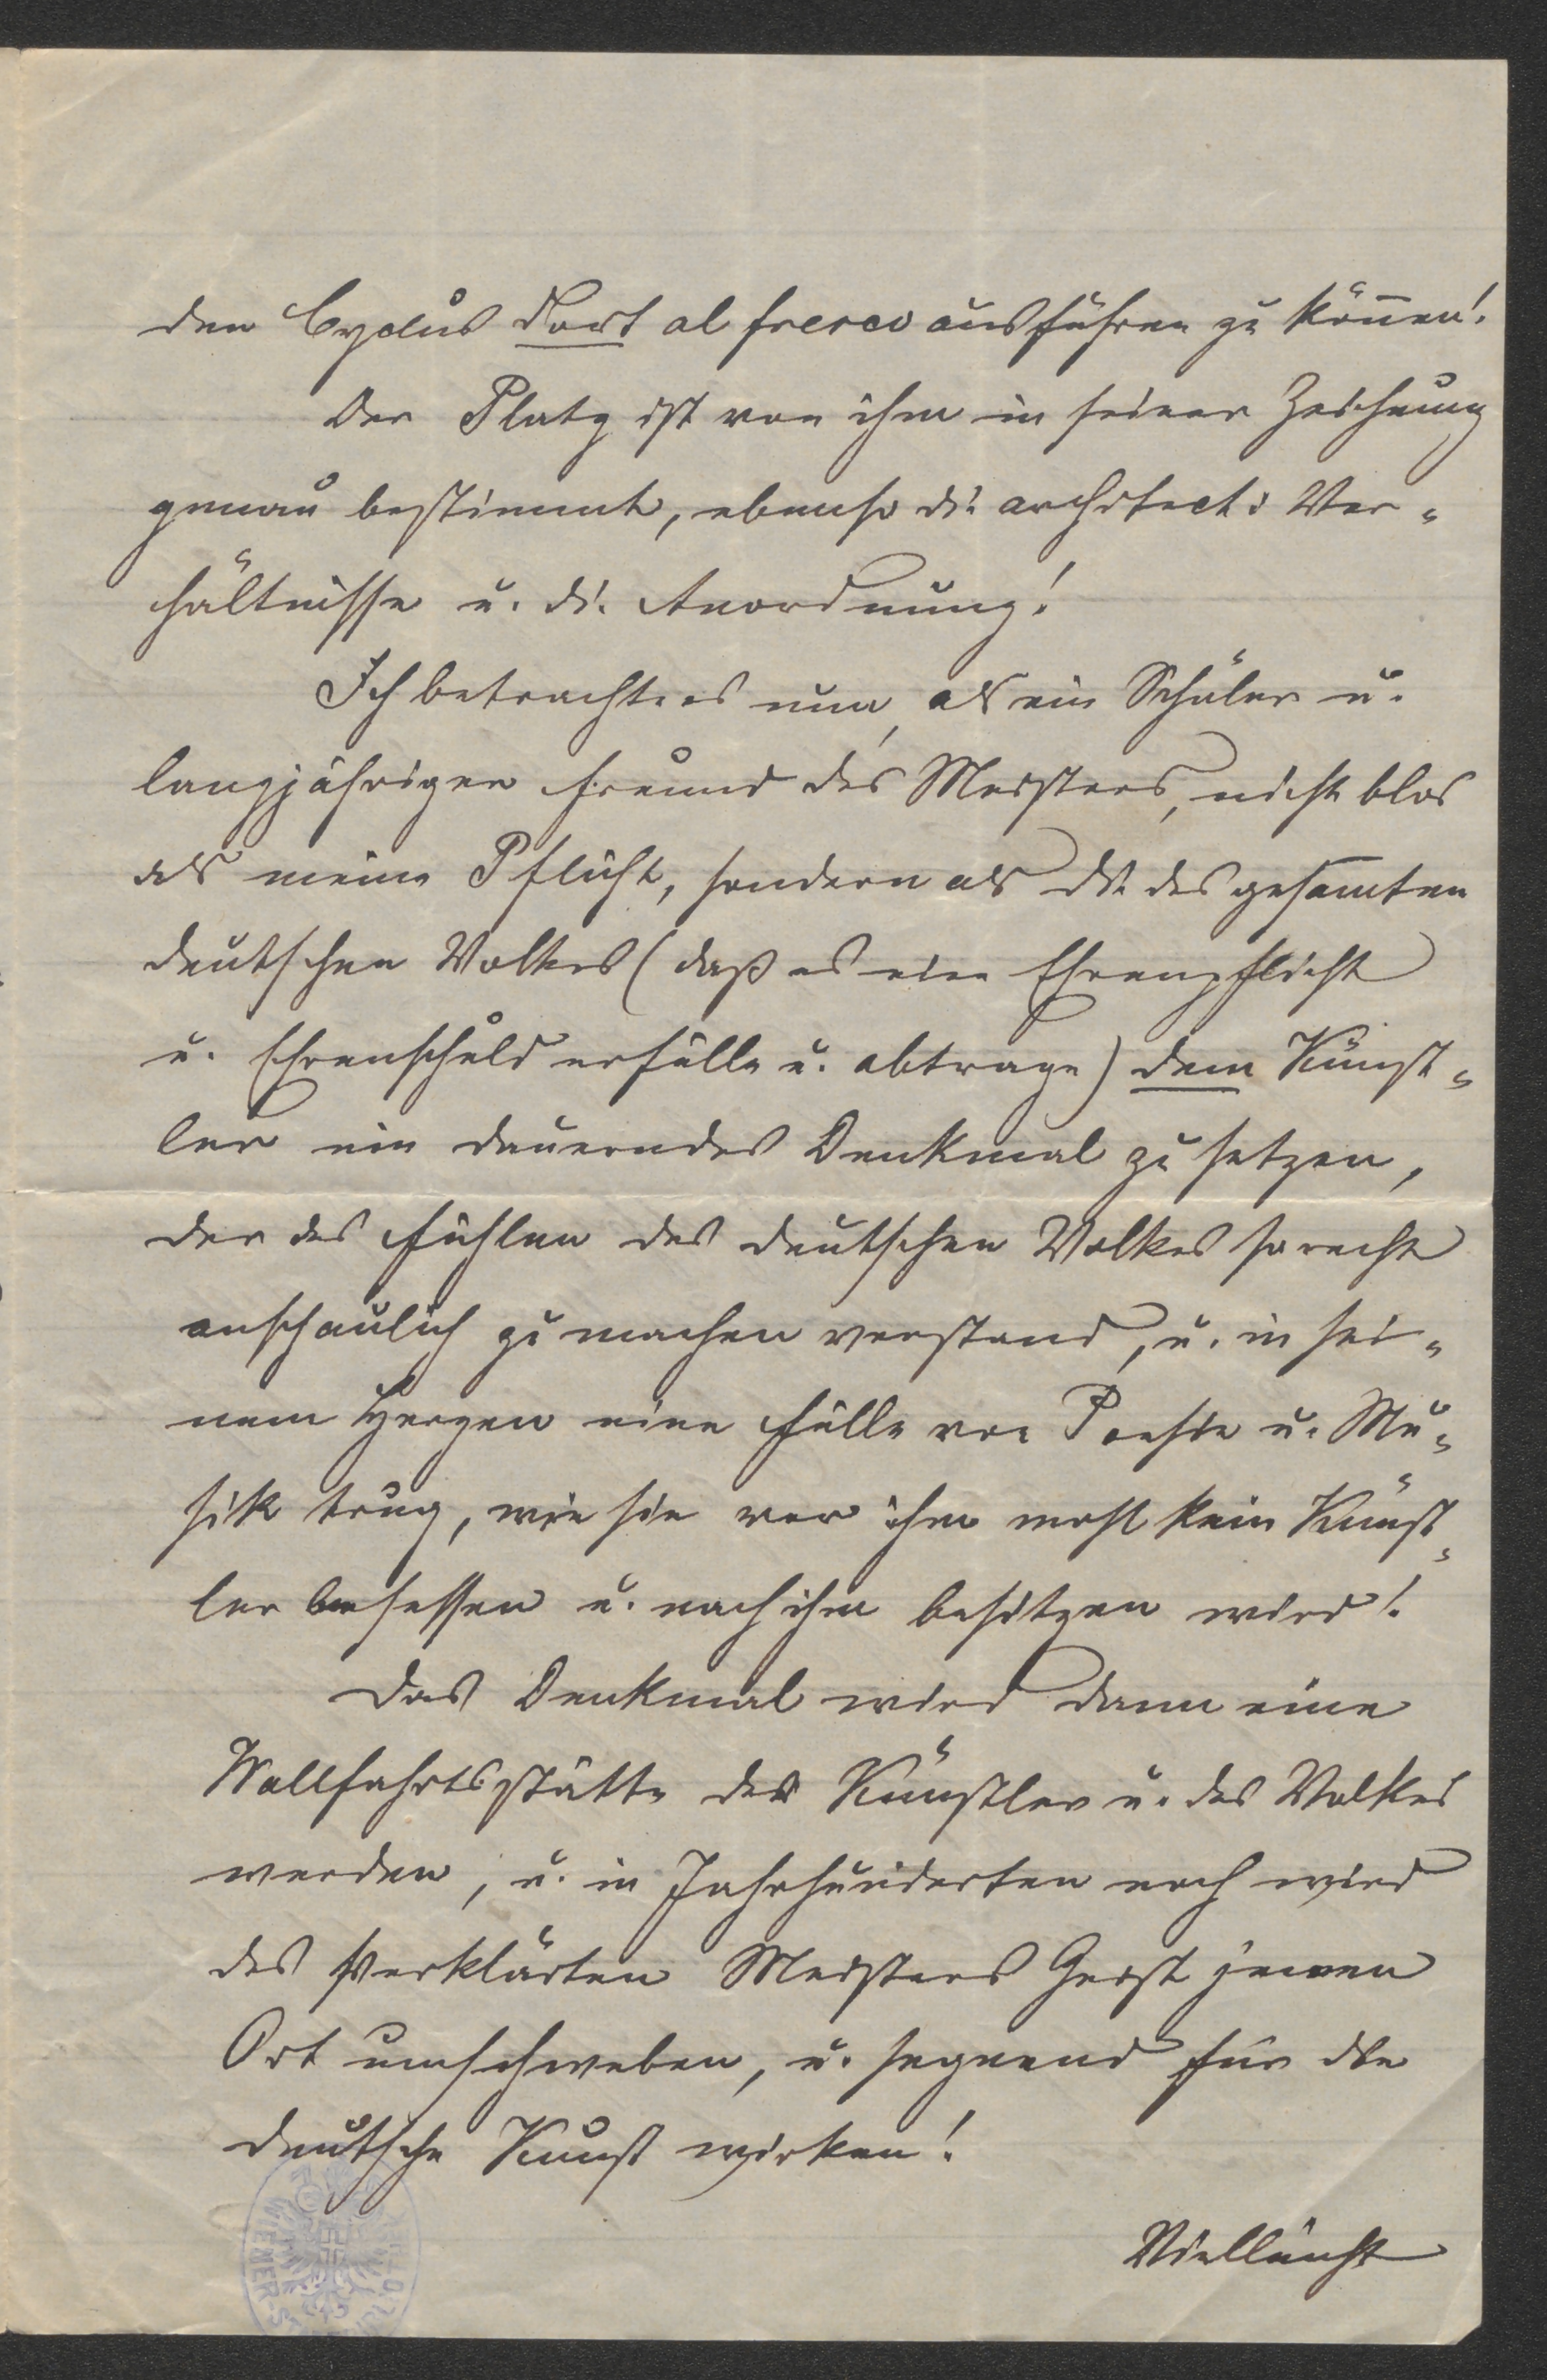 den Cyclus dort al fresco ausführen zu können!
Der Platz ist von ihm in seiner Zeichnung
genau bestimmt, ebenso die architect: Ver-
hältnisse u. die Anordnung!
Ich betrachte es nun, als ein Schüler u.
langjähriger Freund des Meisters, nicht blos
als meine Pflicht, sondern als die des gesamten
deutschen Volkes (daß es eine Ehrenpflicht
u. Ehrenschuld erfülle u. abtrage) dem Künst-
ler ein dauerndes Denkmal zu setzen,
der das Fühlen des deutschen Volkes so recht
anschaulich zu machen verstand, u. in sei-
nem Herzen eine Fülle von Poesie u. Mu-
sik trug, wie sie vor ihm wohl kein Künst-
ler besessen u. nach ihm besitzen wird!
Das Denkmal wird dann eine
Wallfahrtsstätte der Künstler u. des Volkes
werden, u. in Jahrhunderten noch wird
des verklärten Meisters Geist jenen
Ort umschweben, u. segnend für die
deutsche Kunst wirken!
Vielleicht
WIENER